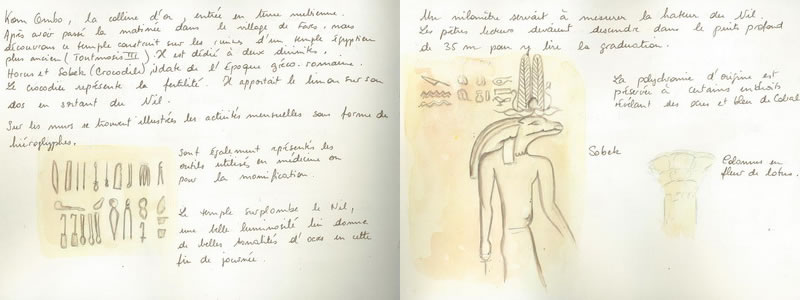 Kom Ombo, la colline d'or, entrée en terre nubienne.
Après avoir passé la matinée dans le village de Fars, nous
découvrons ce temple construit sur les ruines d'un temple Egyptien
plus ancien (Toutmosis III). Il est dédié à deux divinités,
Horus et Sobek (Crocodile), date de l'Epoque gréco-romaine.
Le crocodile représente la fertilité. Il apportait le limon sur son
dos en sortant du Nil.
Sur les murs se trouvent illustrées les activités mensuelles sous forme de
hiéroglyphes.
Sont également représentés les
outils utilisés en médecine ou
pour la momification.
Le temple surplombe le Nil,
une belle luminosité lui donne
de belles tonalités d'ocas en cette
fin de journée.
Un nilomètre servait à mesurer la hauteur du Nil.
Les prêtres lecteurs devaient descendre dans le puits profond
de 35 m pour y lire la graduation.
La polychromie d'origine est
préservée à certains endroits
révélant des ocres et bleu de Cobalt
Sobek
Colonnes en
fleur de lotus.